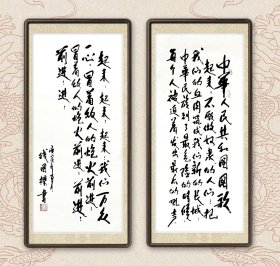 中華人民共和国国歌
起来,不愿做奴隶的人们,把
我们的血肉筑成我们新的长城,
中華民族到了最危险的时候,
每个人被迫着发出最后的吼声
起来,起来,起来,我们万众
一心,冒着敌人的炮火前进,
冒着敌人的炮火前进,前进,
前进,进.